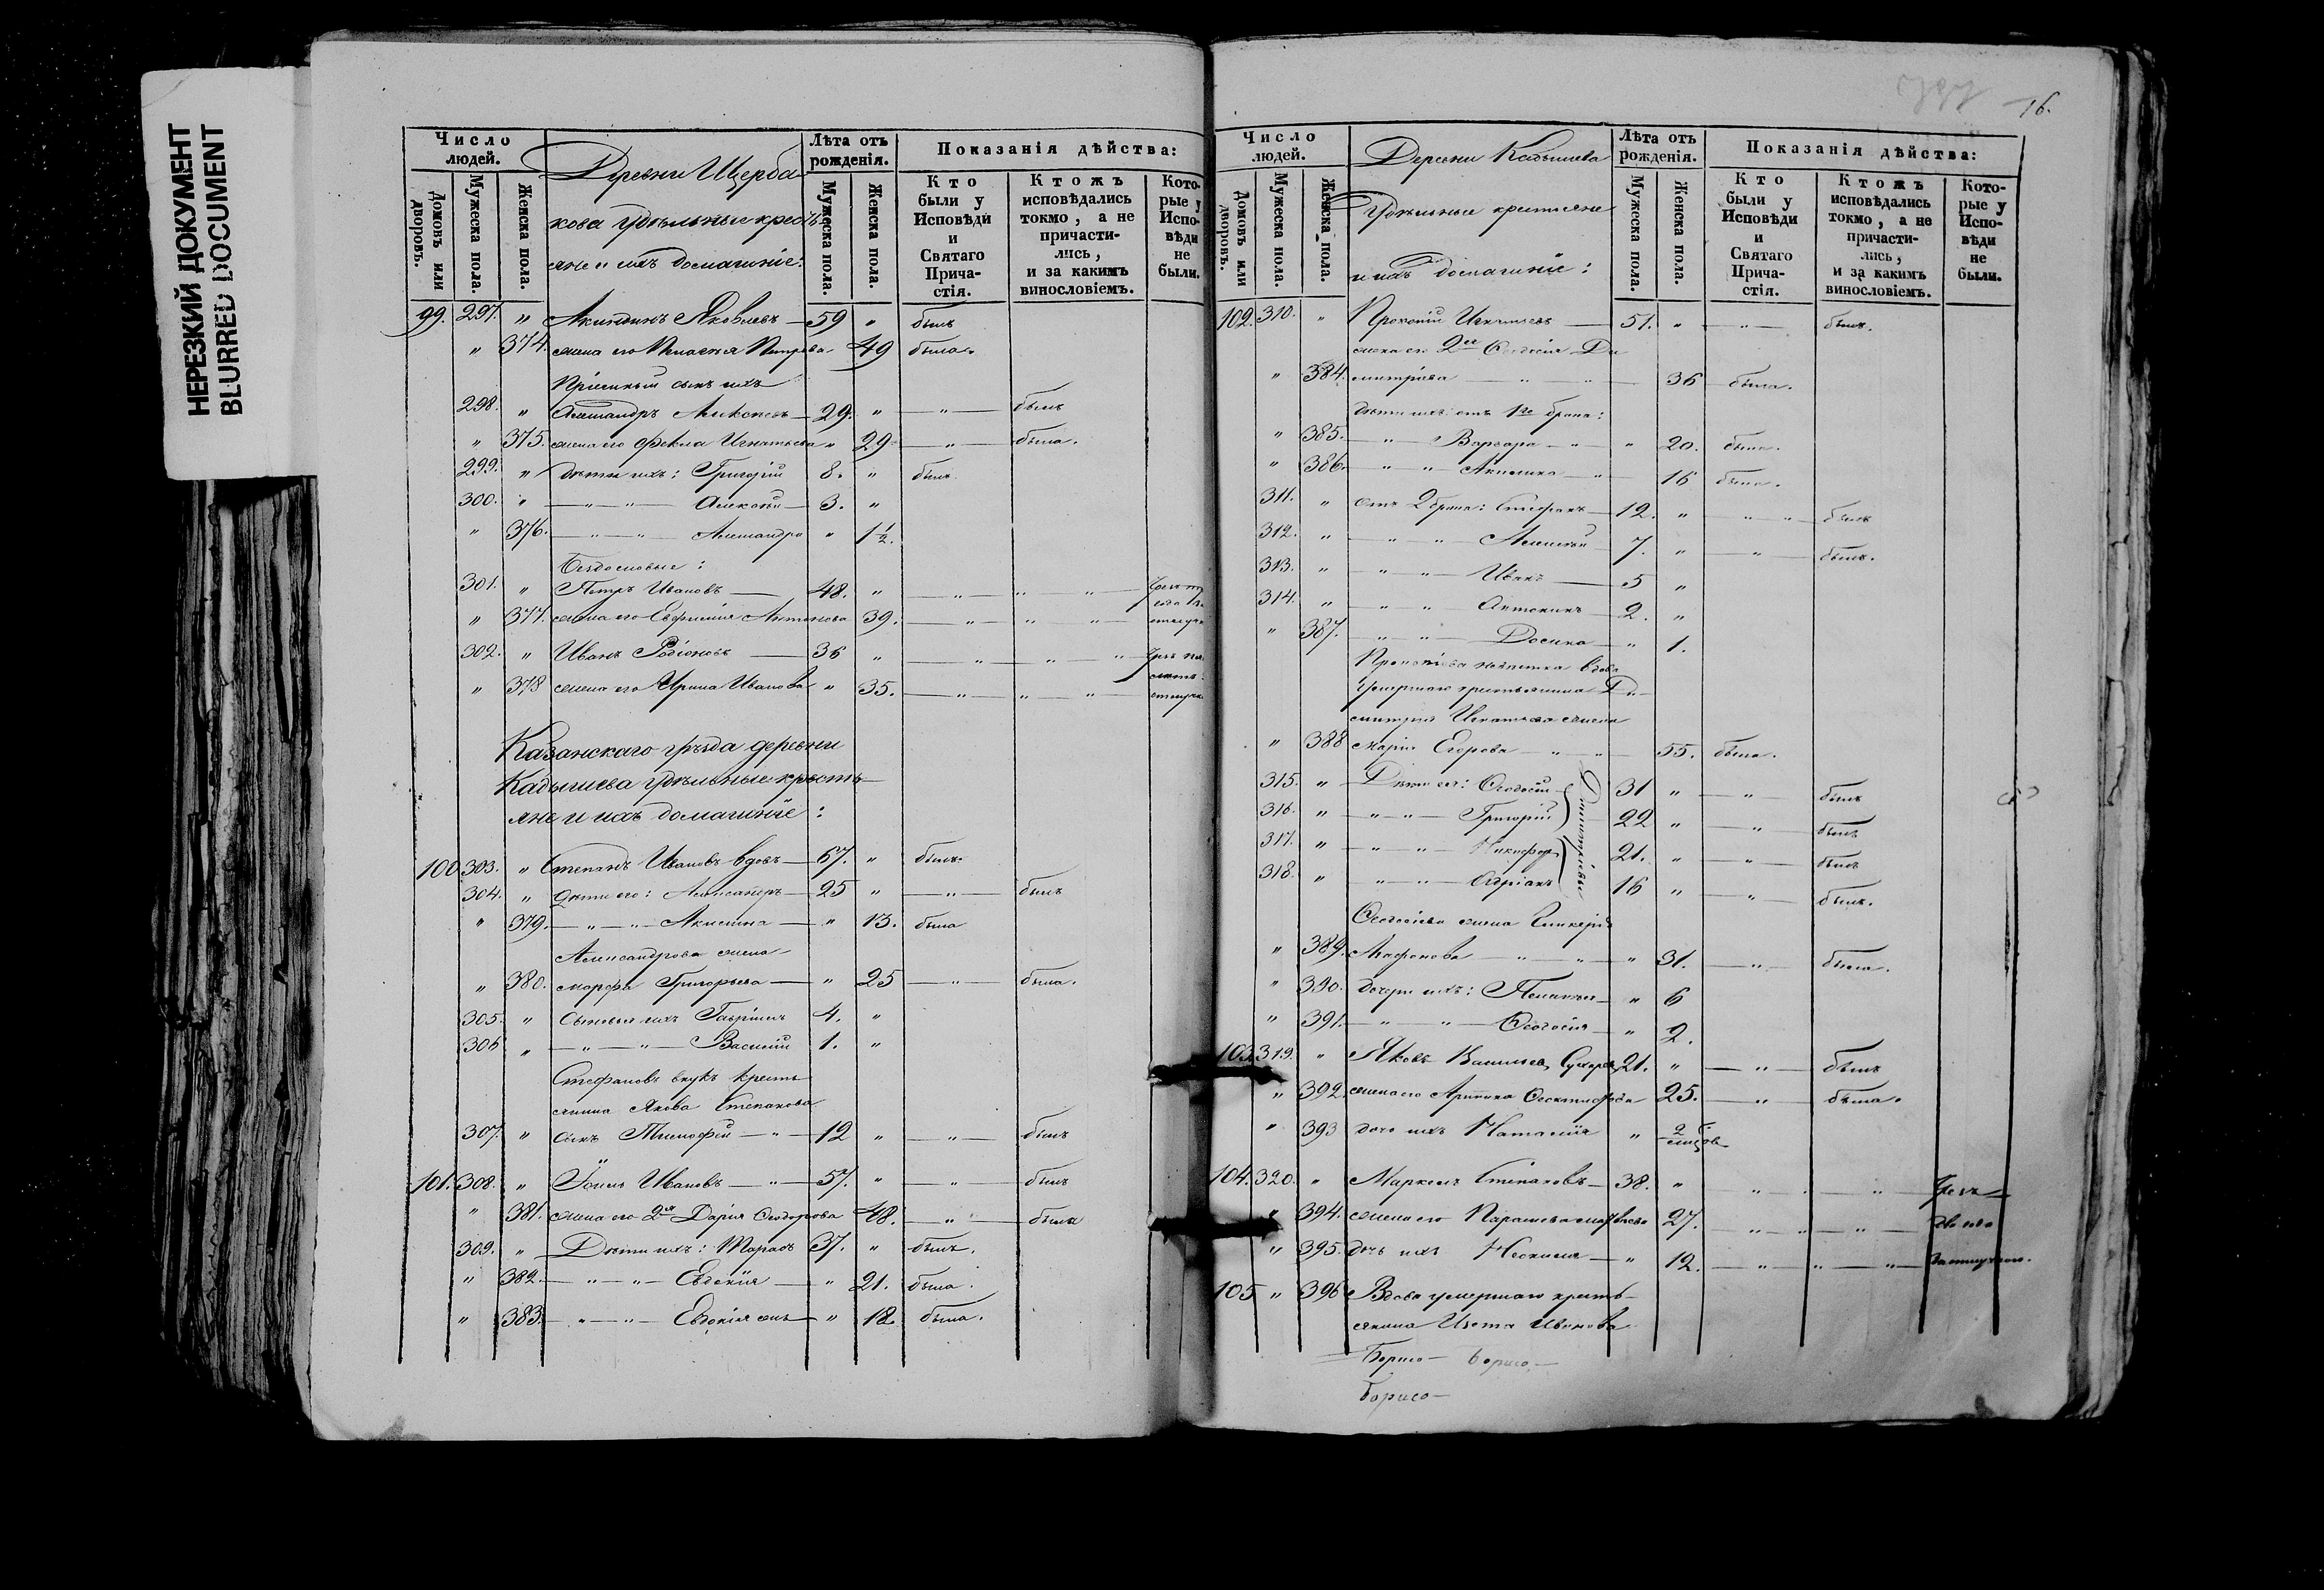 НЕРЕЗКИЙ ДОКУМЕНТ
BLURRED DOCUMENT
Число людей.
Деревни Щерба-
кова удѣльные кресть-
яне и ихъ домашніе:
Лѣта отъ рожденія.
Показанія дѣйства:
Домовъ или дворовъ.
Мужеска пола.
Женска пола.
Мужеска пола.
Женска пола.
Кто были у Исповѣди и Святаго Прича-стія.
Ктожъ исповѣдались токмо, а не причасти-лись, и за какимъ винословіемъ.
Кото-рые у Испо-вѣди не были.
99. 297. " Акиндинъ Яковлевъ — 59 " былъ
" 374. жена его Пелагея Петрова 49 была.
Пріемный сынъ ихъ
298. " Александръ Алексѣевъ — 29. " — " — былъ
" 375. жена его Фекла Игнатьева " 29. — " — была.
299. " дѣти ихъ: Григорій 8. " былъ
300. " — " — Алексѣй — 3. "
" 376. — " — Александра " 1½.
Бездомовые:
301. " Петръ Ивановъ — 48. " — " " "
" 377. жена его Евфимія Антонова 39. — " " "
302. " Иванъ Родіоновъ — 36 " — " — " "
" 378 жена его Ирина Иванова " 35. — " " "
Казанскаго уѣзда деревни
Кадышева удѣльные кресть-
яне и ихъ домашніе:
100 303. " Степанъ Ивановъ вдовъ — 67. " былъ.
304. " Дѣти его: Александръ — 25 " — " — былъ
" 379. — " — " — Акилина — " 13. была
Александрова жена
" 380. Марфа Григорьева — " 25 — " — была.
305. " Сыновья ихъ Гавріилъ 4. "
306 " — " — " — Василій 1. "
Стефановъ внукъ кресть-
янина Якова Степанова
307. " сынъ Тимофей — " — 12 " — " — былъ
101. 308. " Іоиль Ивановъ — " — 57. " — " — былъ
" 381. жена его 2я Дарія Ѳеодорова 48. — " — была
309. " Дѣти ихъ: Тарасъ 37. " былъ.
" 382. — " — " — Евдокія — " 21. была.
" 383. — " — " — Евдокія " 18. была.
16.
Число людей.
Деревни Кадышева
Удѣльные крестьяне
и ихъ домашніе:
Лѣта отъ рожденія.
Показанія дѣйства:
Домовъ или дворовъ.
Мужеска пола.
Женска пола.
Мужеска пола.
Женска пола.
Кто были у Исповѣди и Святаго Прича-стія.
Ктожъ исповѣдались токмо, а не причасти-лись, и за какимъ винословіемъ.
Кото-рые у Испо-вѣди не были.
102. 310. " Прокопій Игнатьевъ — 51. " — " — былъ.
жена его 2я Ѳеодосія Ди-
" 384. митріева — " — " — 36 была.
дѣти ихъ отъ 1го брака:
" 385. — " — " Варвара — " — " 20. была.
" 386. — " — " — Акилина — " — 16 была.
311. " отъ 2 брака: Стефанъ — 12. " — " " — былъ
312. " — " — " — Алексѣй 7. " — " — былъ.
313. " — " — " — Иванъ — 5 "
314. " — " — " Антонинъ — 2. "
" 387. — " — " — " 1.
Прокопіева невѣстка вдова
умершаго крестьянина Ди-
митрія Игнатьева жена
" 388 Марія Егорова — " — " 55. была.
315. " — Дѣти ея: Ѳеодосій 31 " — " — былъ
316. " — " — " — Григорій 22 " — " — былъ
317. " — " — " — Никифоръ 21. " — " — былъ
318. " — " — " — Адріанъ 16 " — " — былъ.
Димитріевы
Ѳеодосіева жена Гликерія
" 389. Агафонова — " — " — " 31. — " — была.
" 390. дочери ихъ: Пелагея — " 6
" 391. — " — " — Ѳеодосія — " 2.
103. 319. " Яковъ Васильевъ 21. " — " — былъ
" 392. жена его 25. — " — была.
" 393 дочь ихъ Наталія " 2
104. 320. " Маркелъ Степановъ — 38. " " "
" 394. жена его Параскева 27. " " "
" 395. дочь ихъ — " 12. — " " — "
105 " 396 Вдова умершаго кресть-
янина Иванова
Борисо- Борисо-
Борисо-